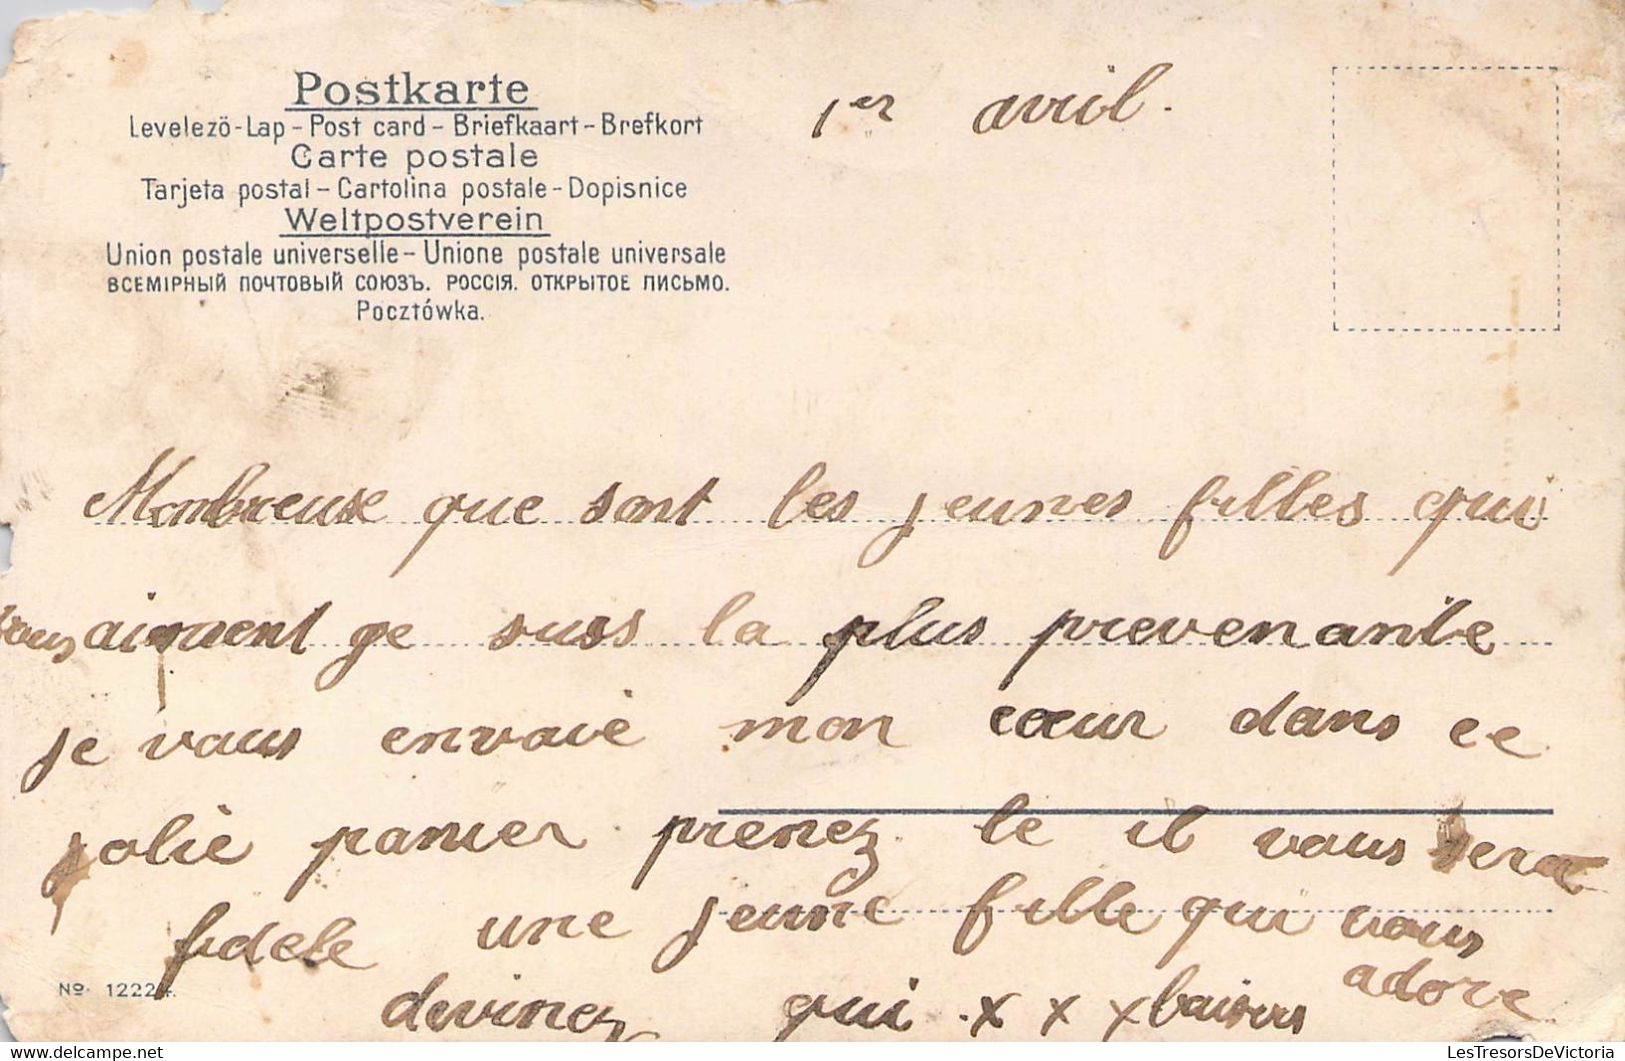 Postkarte
Levelezö-Lap - Post card - Briefkaart - Brefkort
Carte postale
Tarjeta postal - Cartolina postale - Dopisnice
Weltpostverein
Union postale universelle - Unione postale universale
ВСЕМІРНЫЙ ПОЧТОВЫЙ СОЮЗЪ. РОССІЯ. ОТКРЫТОЕ ПИСЬМО.
Pocztówka.
1er avril.
Nombreuse que sont les jeunes filles qui
vous aiment je suis la plus prevenante
je vous envoie mon cœur dans ce
jolie panier prenez le il vous sera
fidele une jeune fille qui vous
adore
devinez qui x x x baisers
No. 12224.
LesTresorsDeVictoria